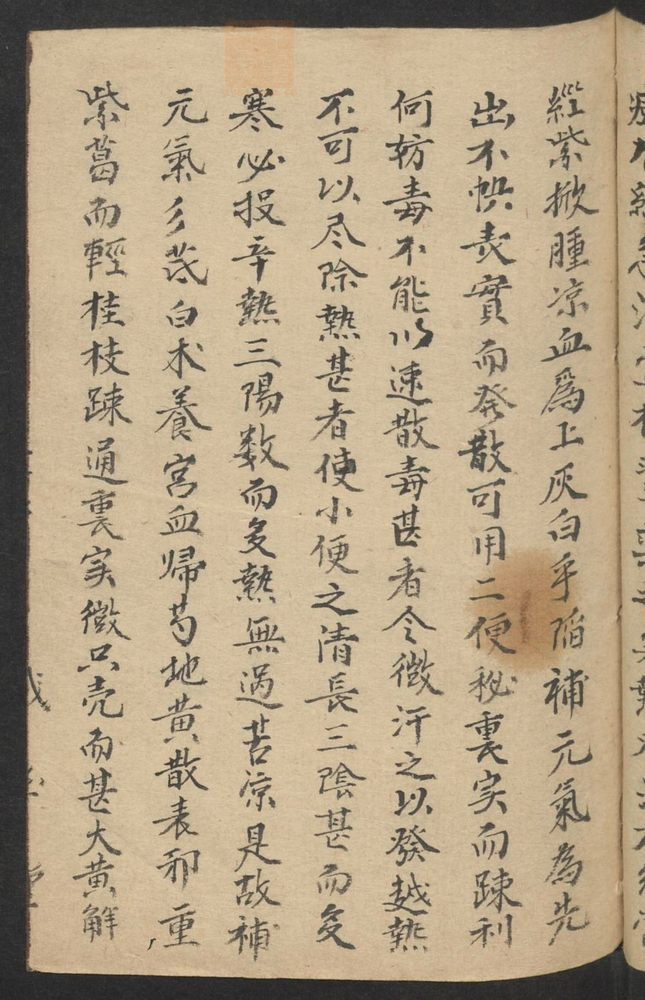 經紫掀腫凉血為上灰白平陷補元氣為先
出不快表實而發散可用二便秘裏实而踈利
何妨毒不能以速散毒甚者令微汗之以發越熱
不可以尽除熱甚者使小便之清長三陰甚而多
寒必投辛熱三陽数而多熱無過苦凉是故補
元氣參芪白术養宮血帰芍地黄散表邪重
紫葛而輕桂枝踈通裏実微只壳而甚大黄解